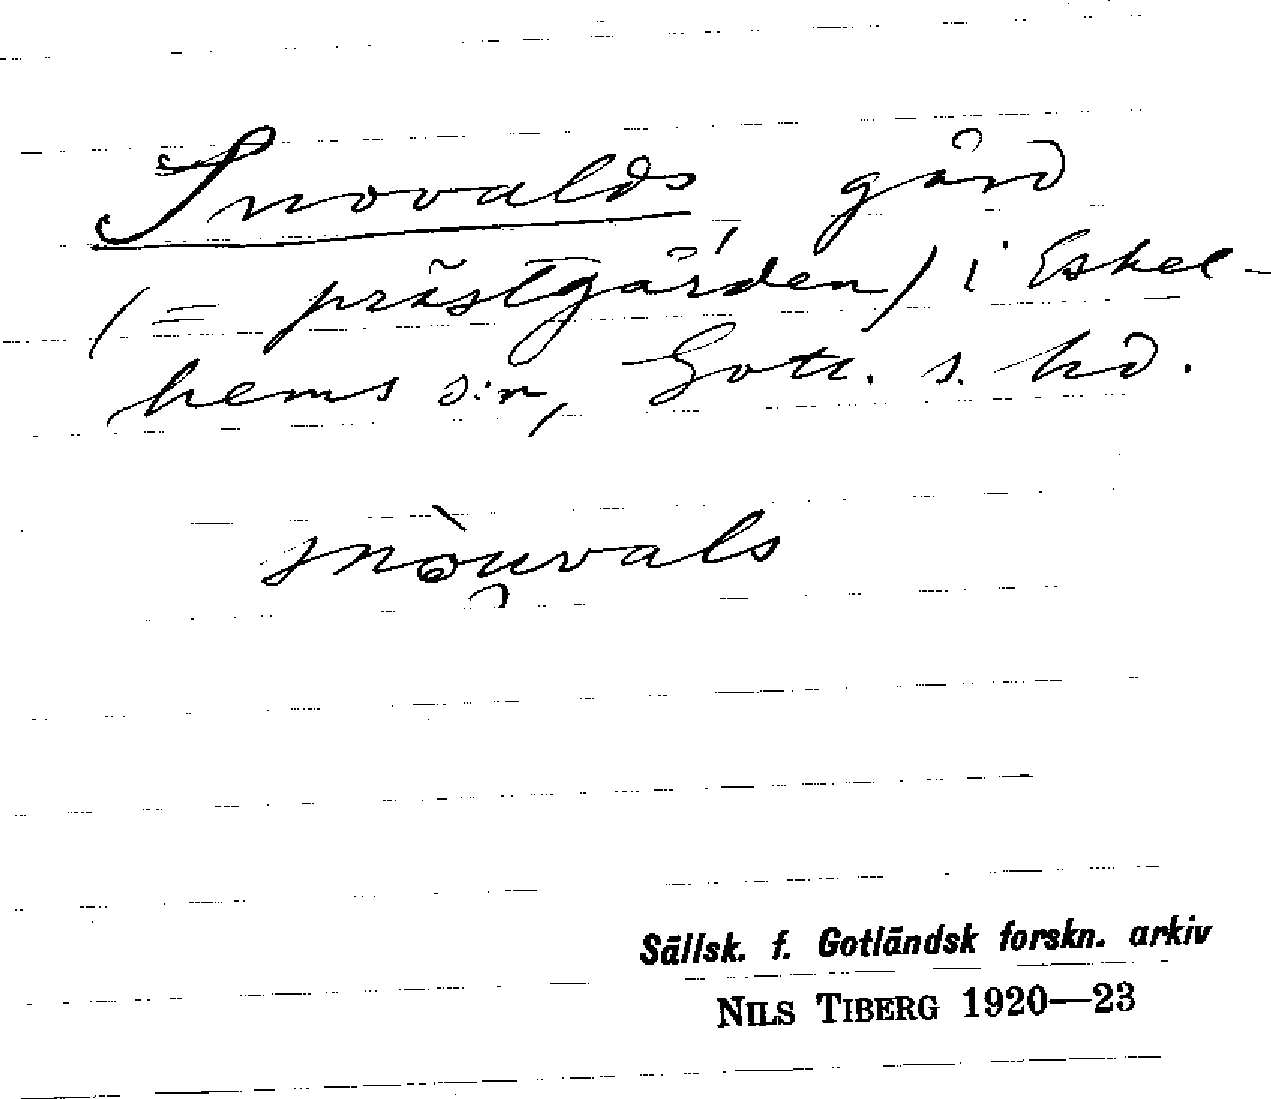 Snovalds gård
(= prästgården) i Eskel-
hems s:n, Gotl. s. hd.
snòu̯vals
Sällsk. f. Gotländsk forskn. arkiv
NILS TIBERG 1920—23